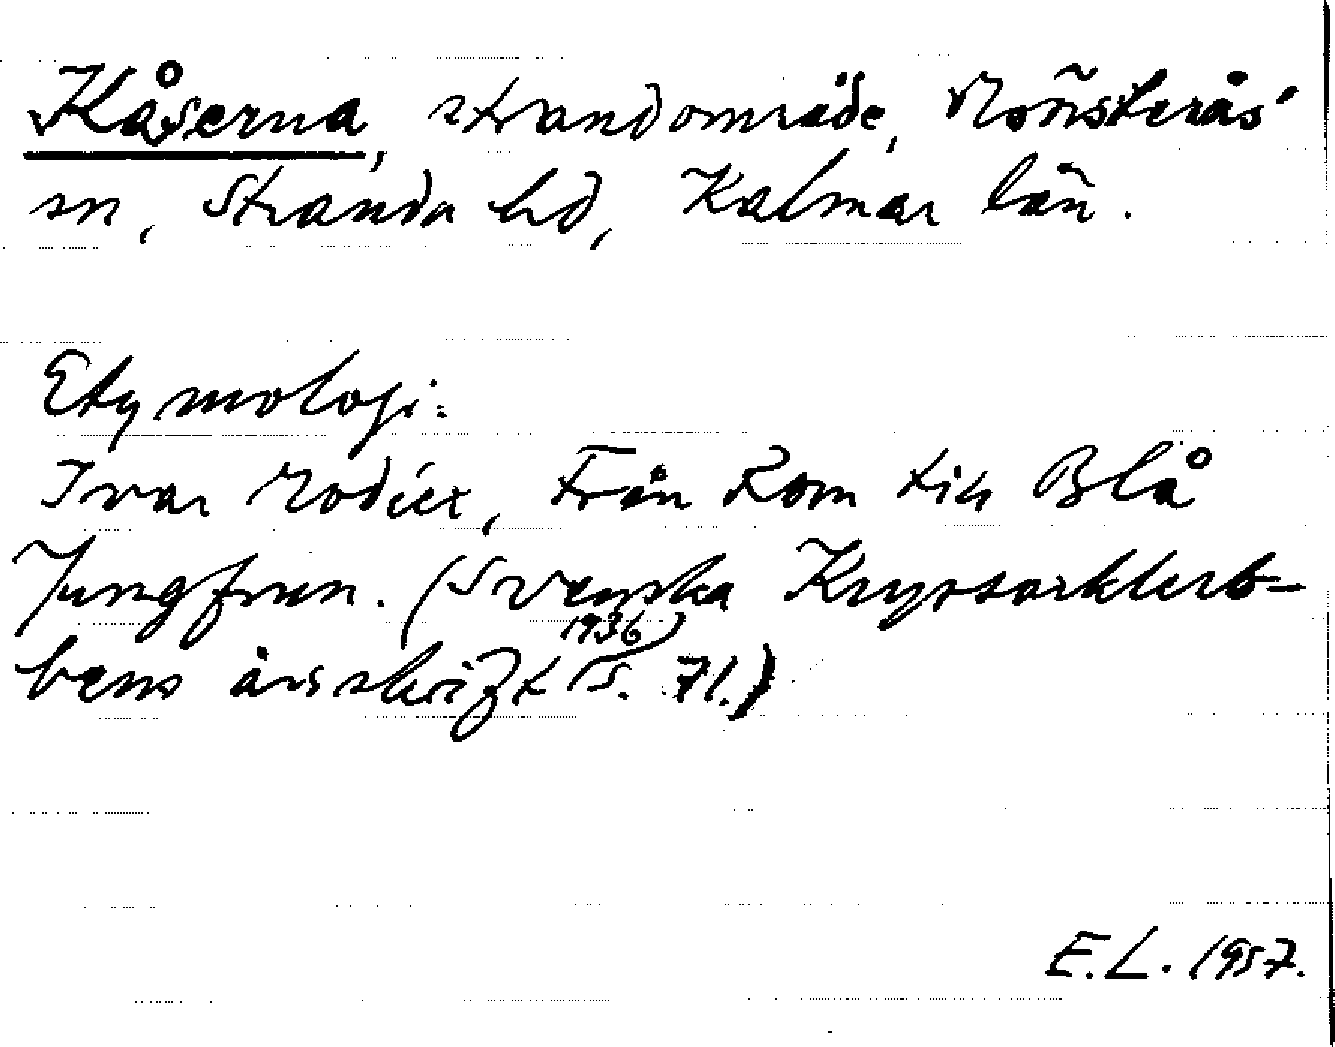 Kåserna, strandområde, Mönsterås
sn, Stranda hd, Kalmar län.
Etymologi:
Ivar Modéer, Från Rom till Blå
Jungfrun. (Svenska Kryssarklub-
bens årsskrift 1936 s. 71.)
E.L. 1957.